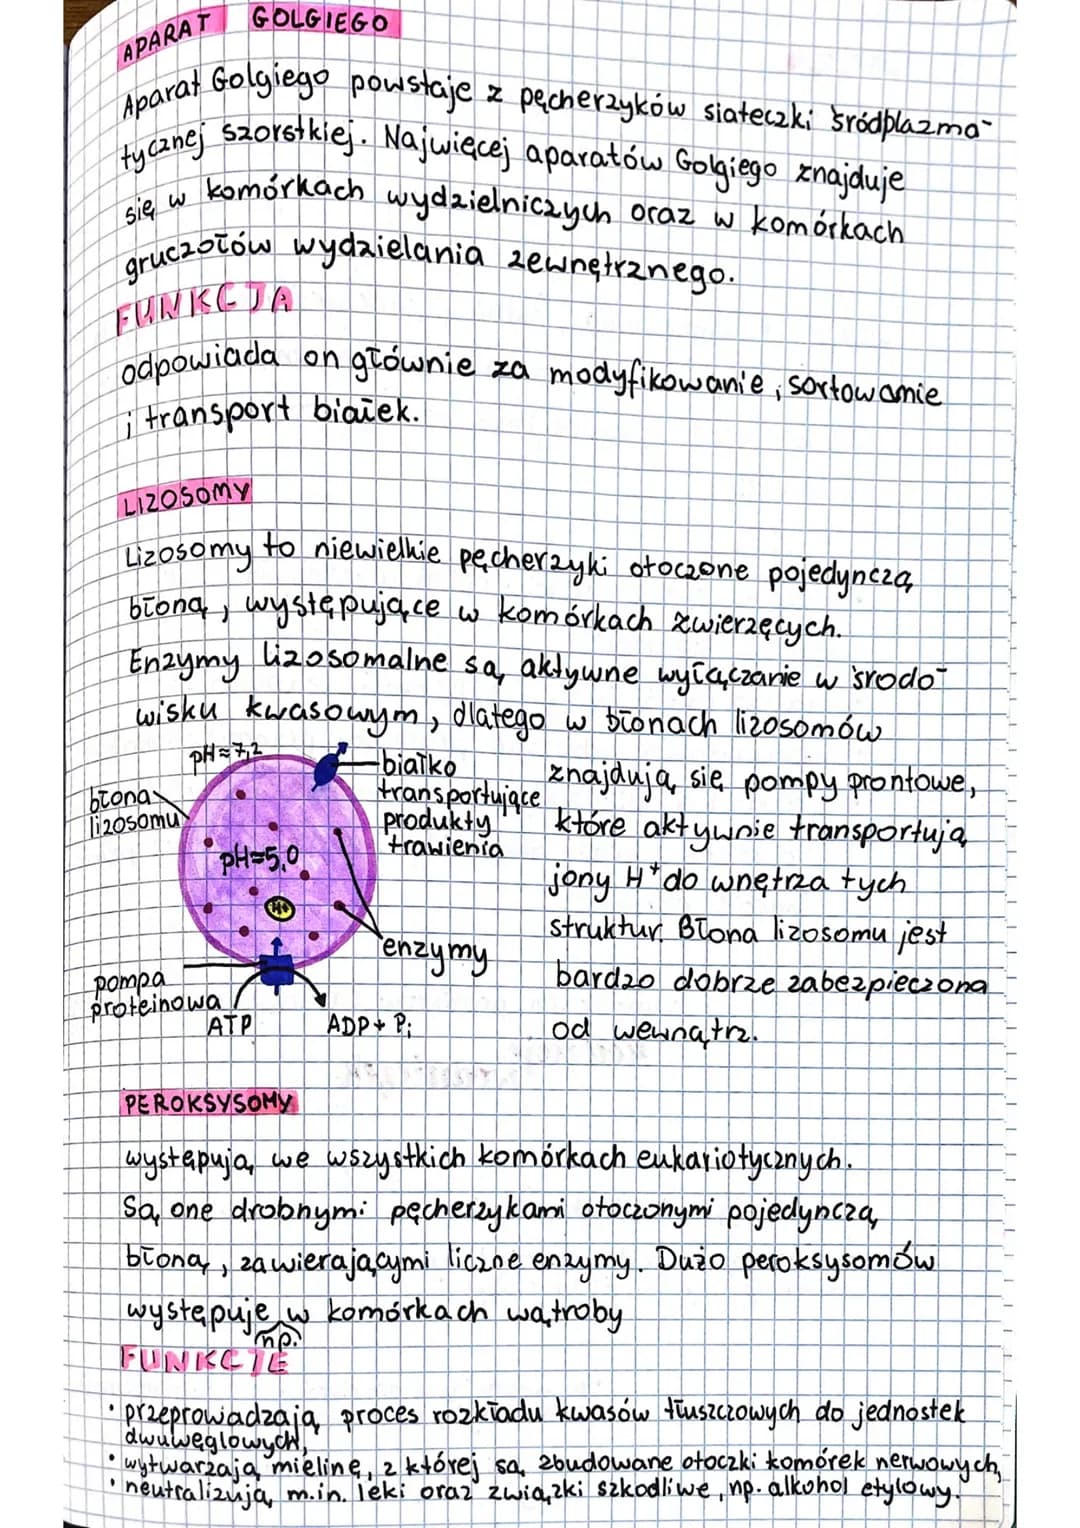 APARAT GOLGIEGO
Aparat Golgiego powstaje z pęcherzyków siateczki śródplazma-
tycznej szorstkiej. Najwięcej aparatów Golgiego znajduje
się w komórkach wydzielniczych oraz w komórkach
gruczołów wydzielania zewnętrznego.
FUNKCJA
odpowiada on głównie za modyfikowanie, sortowanie
i transport białek.
LIZOSOMY
Lizosomy to niewielkie pęcherzyki otoczone pojedynczą
błoną, występujące w komórkach zwierzęcych.
Enzymy lizosomalne są aktywne wyłączanie w środo-
wisku kwasowym, dlatego w błonach lizosomów
znajdują się pompy prontowe,
które aktywnie transportują
jony H⁺ do wnętrza tych
struktur. Błona lizosomu jest
bardzo dobrze zabezpieczona
od wewnątrz.
pH≈7,2
błona
lizosomu
białko
transportujące
produkty
trawienia
pH≈5,0
H+
enzymy
pompa
proteinowa
ATP
ADP + Pi
PEROKSYSOMY
występują we wszystkich komórkach eukariotycznych.
Są one drobnymi pęcherzykami otoczonymi pojedynczą
błoną, zawierającymi liczne enzymy. Dużo peroksysomów
występuje w komórkach wątroby
np.
FUNKCJE
• przeprowadzają proces rozkładu kwasów tłuszczowych do jednostek
dwuwęglowych,
• wytwarzają mielinę, z której są zbudowane otoczki komórek nerwowych,
• neutralizują m.in. leki oraz związki szkodliwe, np. alkohol etylowy.